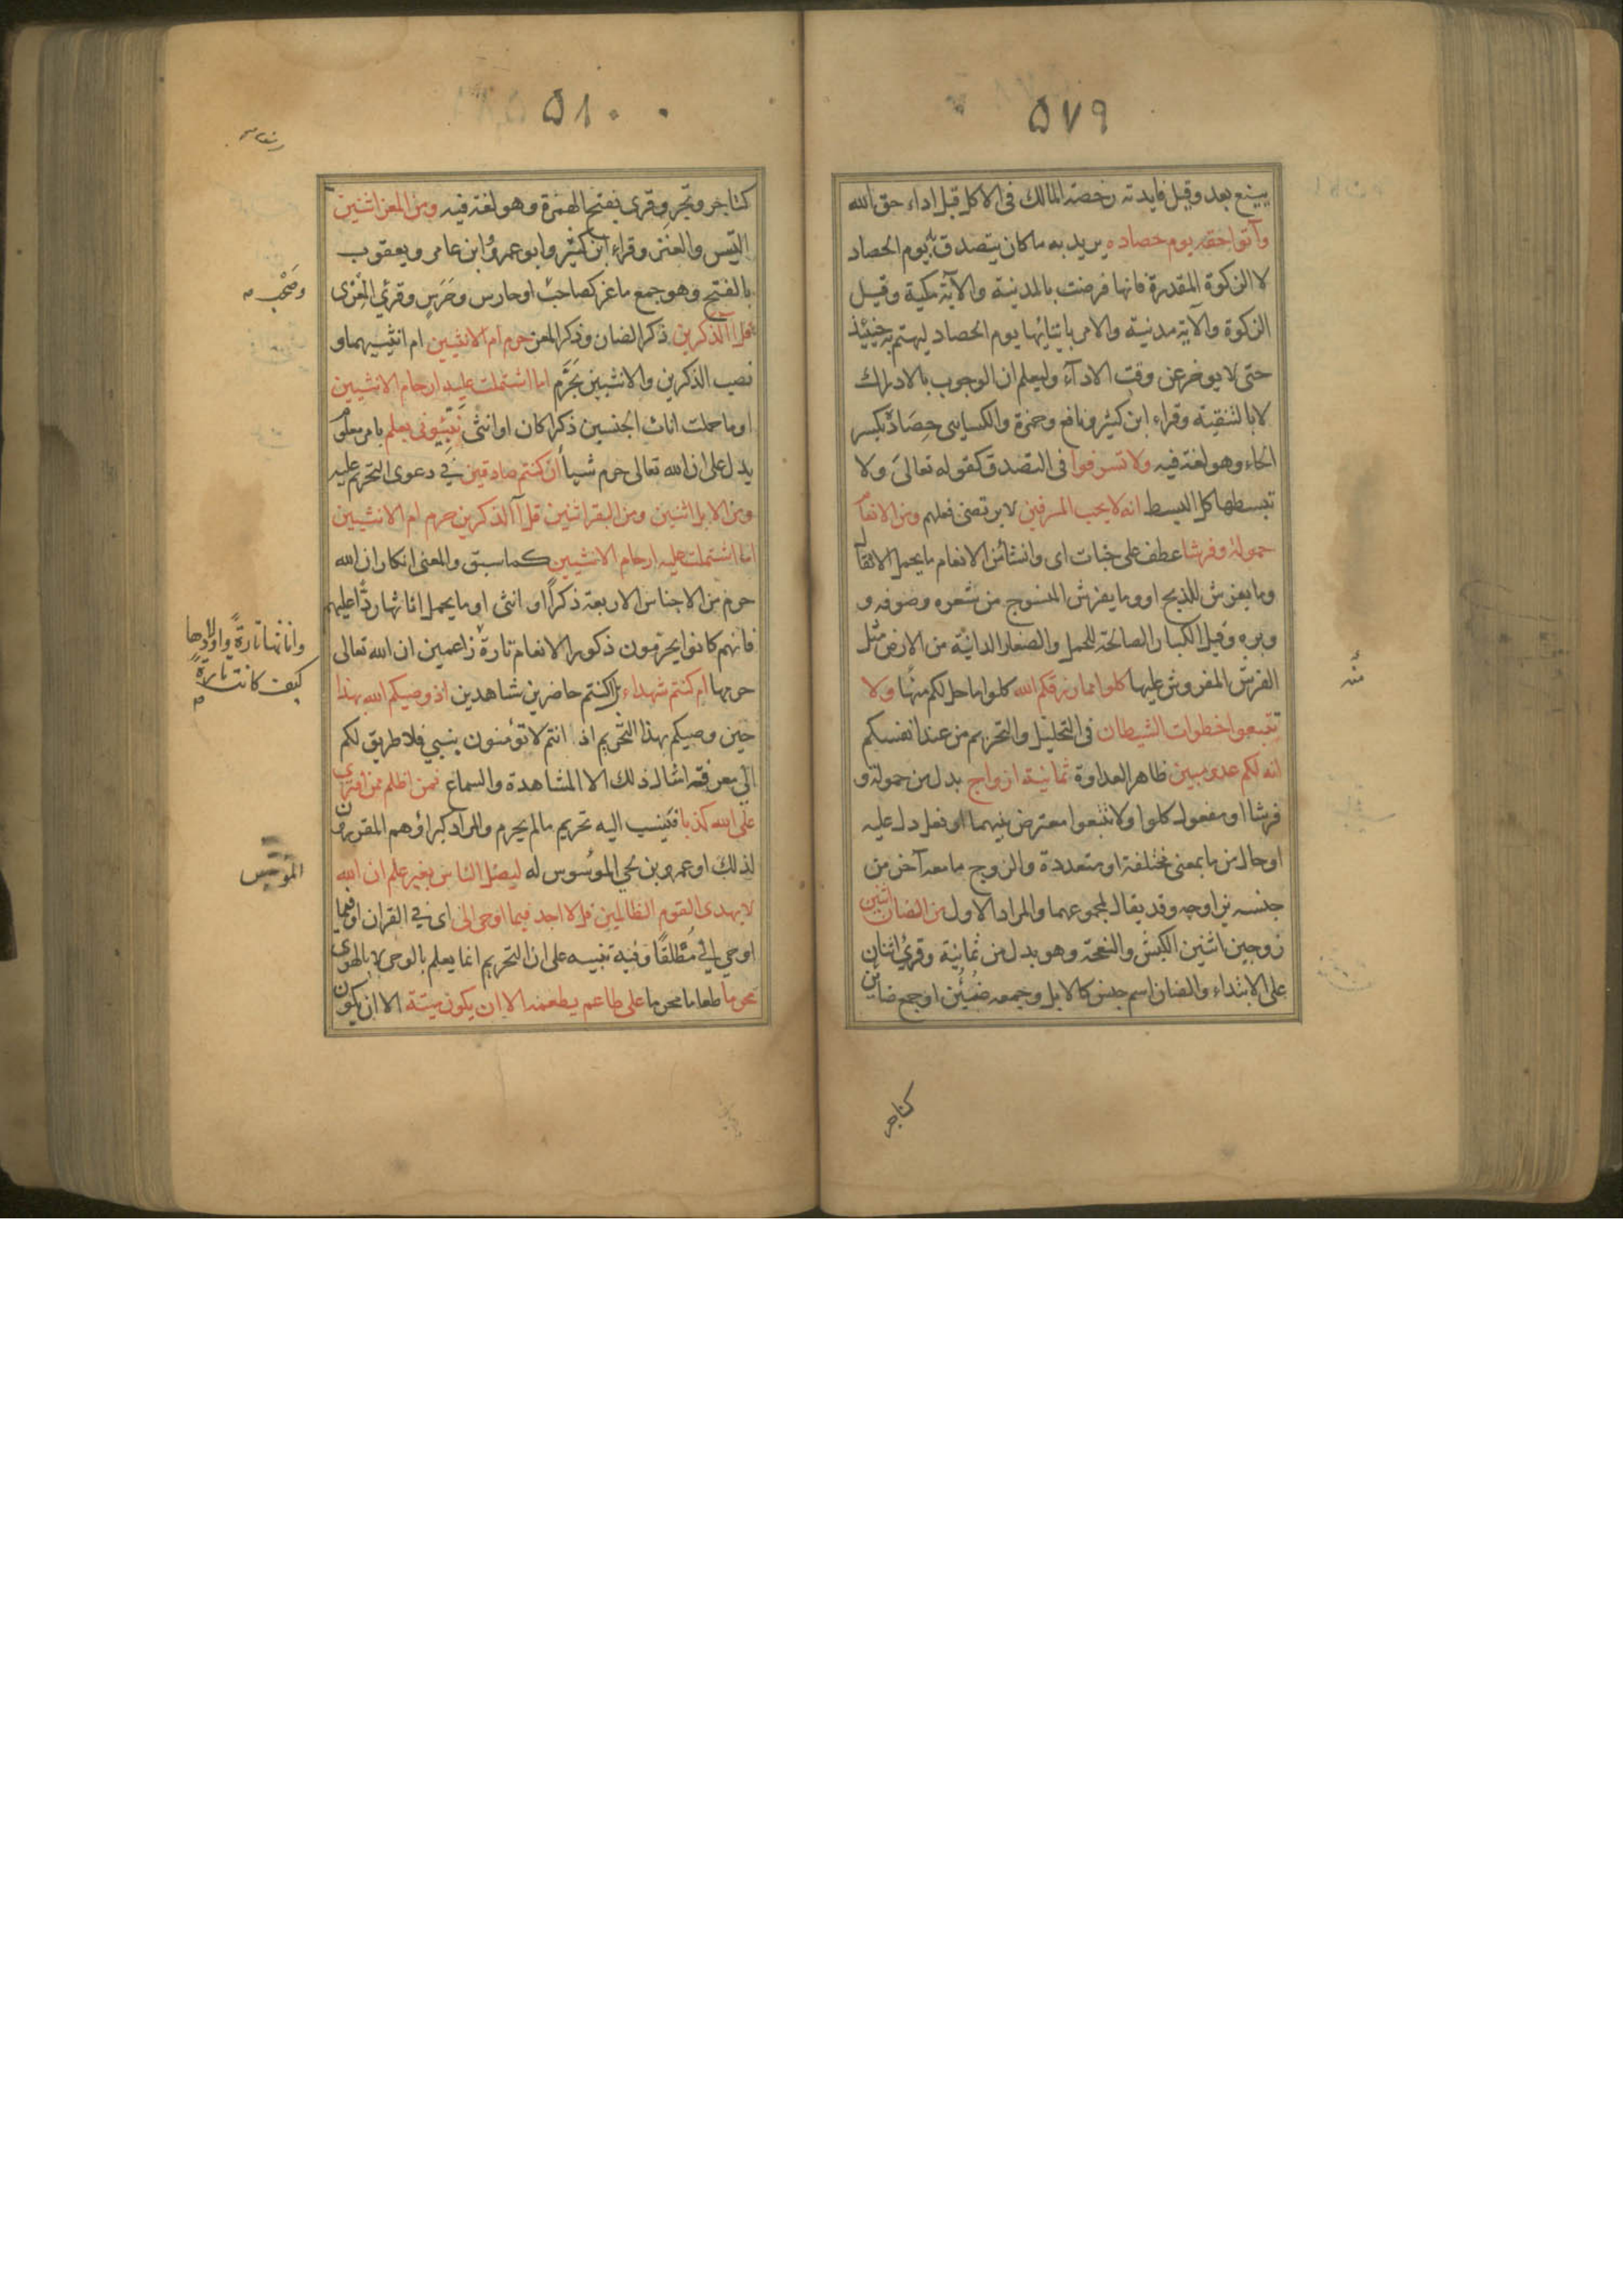 ٥٧٩
يينع بعد وقيل فايدته رخصة المالك فى الاكل قبل اداء حق الله
وآتوا حقه يوم حصاده يريد به ما كان يتصدق به يوم الحصاد
لا الزكوة المقدرة فانها فرضت بالمدنية والآية مكية وقيل
الزكوة والآية مدنية والامر بايتائها يوم الحصاد ليهتم به حينئذ
حتى لا يوخر عن وقت الادآء وليعلم ان الوجوب بالادراك
لا بالتنقية وقراء ابن كثير ونافع وحمزة والكسايى حِصَاده بكسر
الحاء وهو لغة فيه ولا تسرفوا فى التصدق كقوله تعالى ولا
تبسطها كل البسط انه لا يحب المسرفين لا يرتضى فعلهم ومن الانعام
حمولة وفرشا عطف على جنات اى وانشأ من الانعام ما يحمل الاثقال
وما يفرش للذبح او وما يفرش المنسوج من شعره وصوفه و
وبره وقيل الكبار الصالحة للحمل والصغار الدانية من الارض مثل
الفرش المفروش عليها كلوا مما رزقكم الله كلوا ما حل لكم منه ولا
منه
تتبعوا خطوات الشيطان فى التحليل والتحريم من عند انفسكم
انه لكم عدو مبين ظاهر العداوة ثمانية ازواج بدل من حمولة و
فرشا او مفعول كلوا ولا تتبعوا معترض بينهما او فعل دل عليه
او حال من ما بمعنى مختلفة او متعددة والزوج ما معه آخر من
جنسه يزاوجه وقد يقال لمجموعهما والمراد الاول من الضان اثنين
زوجين اثنين الكبش والنعجة وهو بدل من ثمانية وقرئ اثنان
على الابتداء والضان اسم جنس كالابل وجمعه ضئين او جمع ضائن
كتاجر
٥٨٠
كتاجر وتجر وقرى بفتح الهمزة وهو لغة فيه ومن المعز اثنين
التيس والعنز وقراء ابن كثير وابو عمرو وابن عامر ويعقوب
بالفتح وهو جمع ماعز كصاحب او حارس وحَرَس وقرئ المعزى
وصَحْب
قل آالذكرين ذكر الضان وذكر المعز حرم ام الانثيين ام انثييهما و
نصب الذكرين والانثيين بحَرَّم اما اشتملت عليه ارحام الانثيين
او ما حملت اناث الجنسين ذكرا كان او انثى نَبِّئونى بعلم بامر معلوم
يدل على ان الله تعالى حرم شيأ ان كنتم صادقين فى دعوى التحريم عليه
ومن الابل اثنين ومن البقر اثنين قل آالذكرين حرم ام الانثيين
اما اشتملت عليه ارحام الانثيين كما سبق والمعنى انكار ان الله
حرم من الاجناس الاربعة ذكرا او انثى او ما يحمل اناثها ردّا عليهم
فانهم كانوا يحرمون ذكور الانعام تارة زاعمين ان الله تعالى
واناثها تارةً واولادها
كيف كانت تارةً
حرمها ام كنتم شهداء بل اكنتم حاضرين شاهدين اذ وصيكم الله بهذا
حين وصيكم بهذا التحريم اذ انتم لا تؤمنون بنبي فلا طريق لكم
الى معرفة امثال ذلك الا المشاهدة والسماع فمن اظلم ممن افترى
على الله كذبا فينسب اليه تحريم ما لم يحرم والمراد كبراؤهم المقررون
لذلك او عمرو بن لحي الموسوس له ليضل الناس بغير علم ان الله
المؤسِّس
لا يهدى القوم الظالمين قل لا اجد فيما اوحى الى اى فى القران او فيما
اوحي الي مُطْلَقًا وفيه تنبيه على ان التحريم انما يعلم بالوحى لا بالهوى
محرما طعاما محرما على طاعم يطعمه الا ان يكون ميتة الا ان يكون